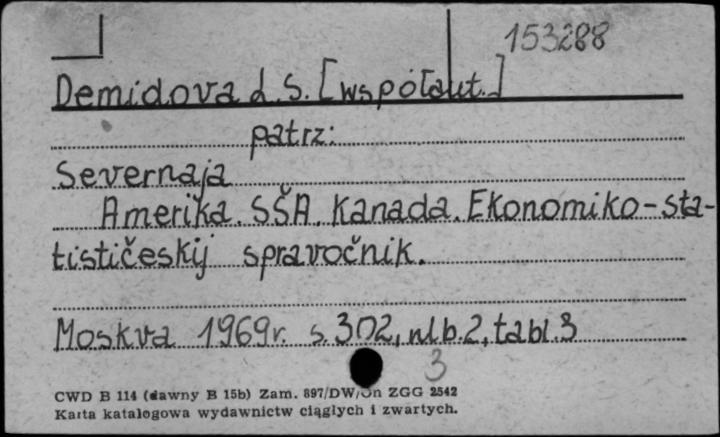 153288
Demidova L.S. [współaut.]
patrz:
Severnaja
Amerika. SŠA. Kanada. Ekonomiko-sta-
tističeskij spravočnik.
Moskva 1969r. s.302, nlb.2, tabl.3
3
CWD B 114 (dawny B 15b) Zam. 897/DW/On ZGG 2542
Karta katalogowa wydawnictw ciągłych i zwartych.